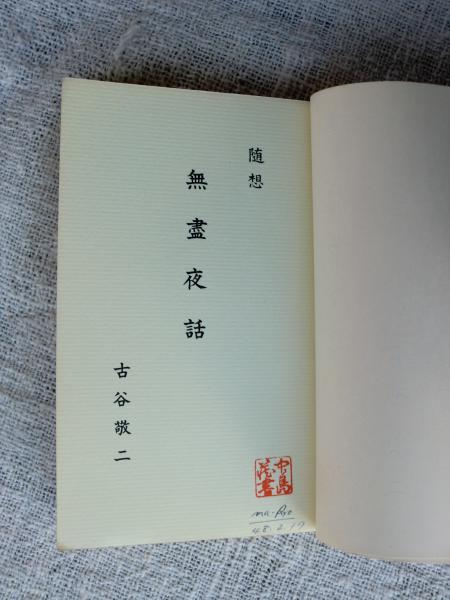 随想
無盡夜話
古谷敬二
中島
蔵書
48.2.19